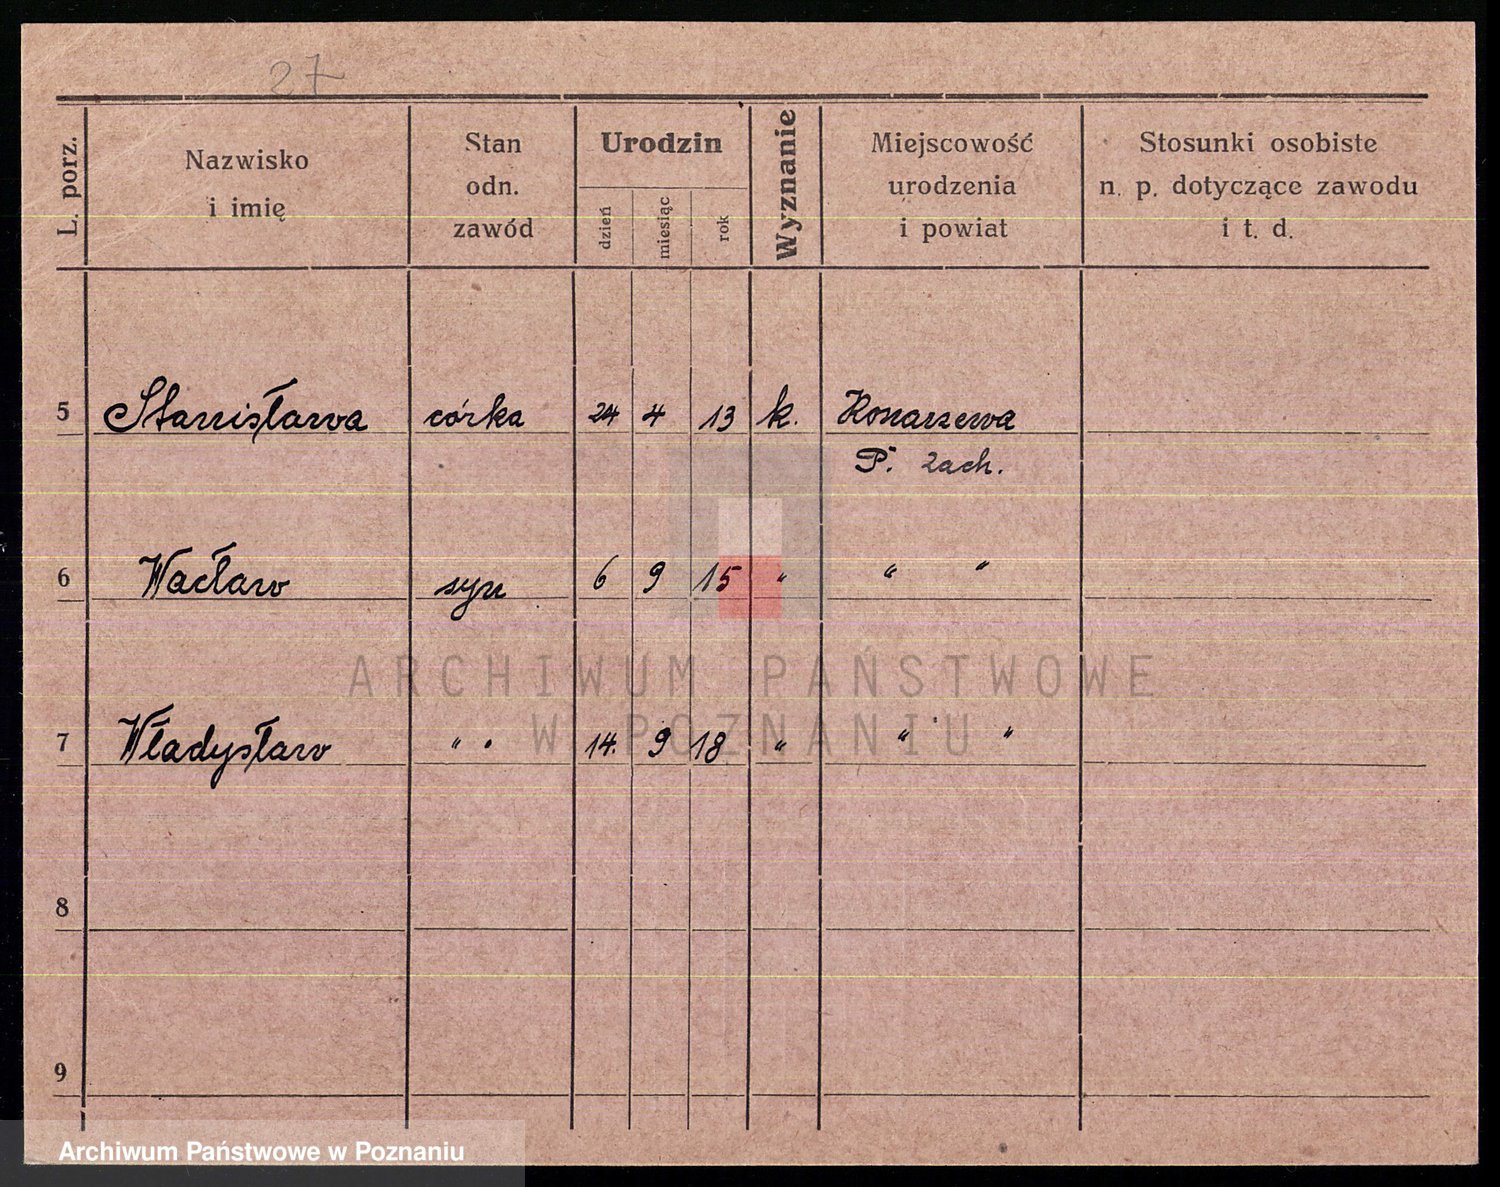 27
L. porz.
Nazwisko
i imię
Stan
odn.
zawód
Urodzin
dzień
miesiąc
rok
Wyznanie
Miejscowość
urodzenia
i powiat
Stosunki osobiste
n. p. dotyczące zawodu
i t. d.
5 Stanisława córka 24 4 13 k. Konarzewa
P. Zach.
6 Wacław syn 6 9 15 " " "
7 Władysław " " 14. 9 18 " " "
8
9
ARCHIWUM PAŃSTWOWE
W POZNANIU
Archiwum Państwowe w Poznaniu